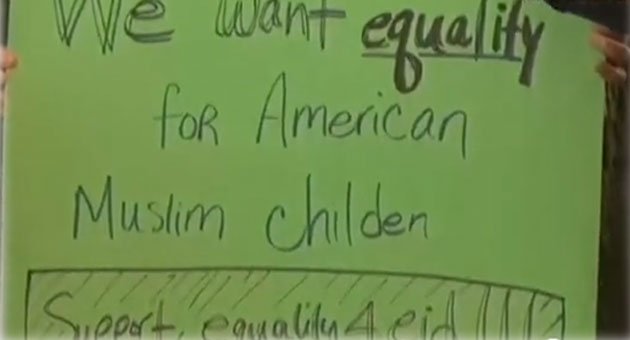 We want equality
for American
Muslim childen
Support equality 4 eid